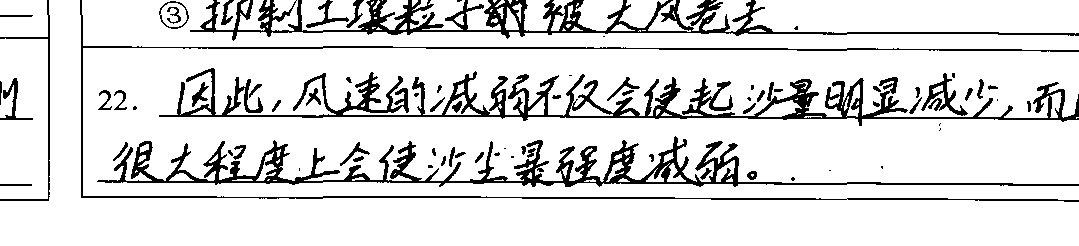 ③抑制土壤粒子被大风卷去.
22. 因此,风速的减弱不仅会使起沙量明显减少,而
很大程度上会使沙尘暴强度减弱。